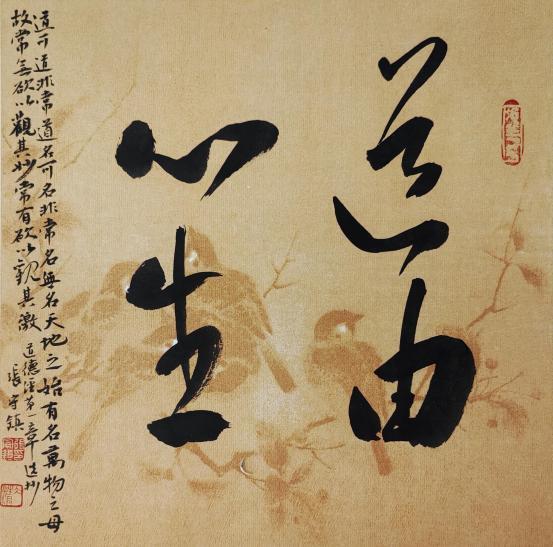 道由
心生
道可道非常道名可名非常名無名天地之始有名萬物之母
故常無欲以觀其妙常有欲以觀其激
道德經第一章选抄
張守鎮